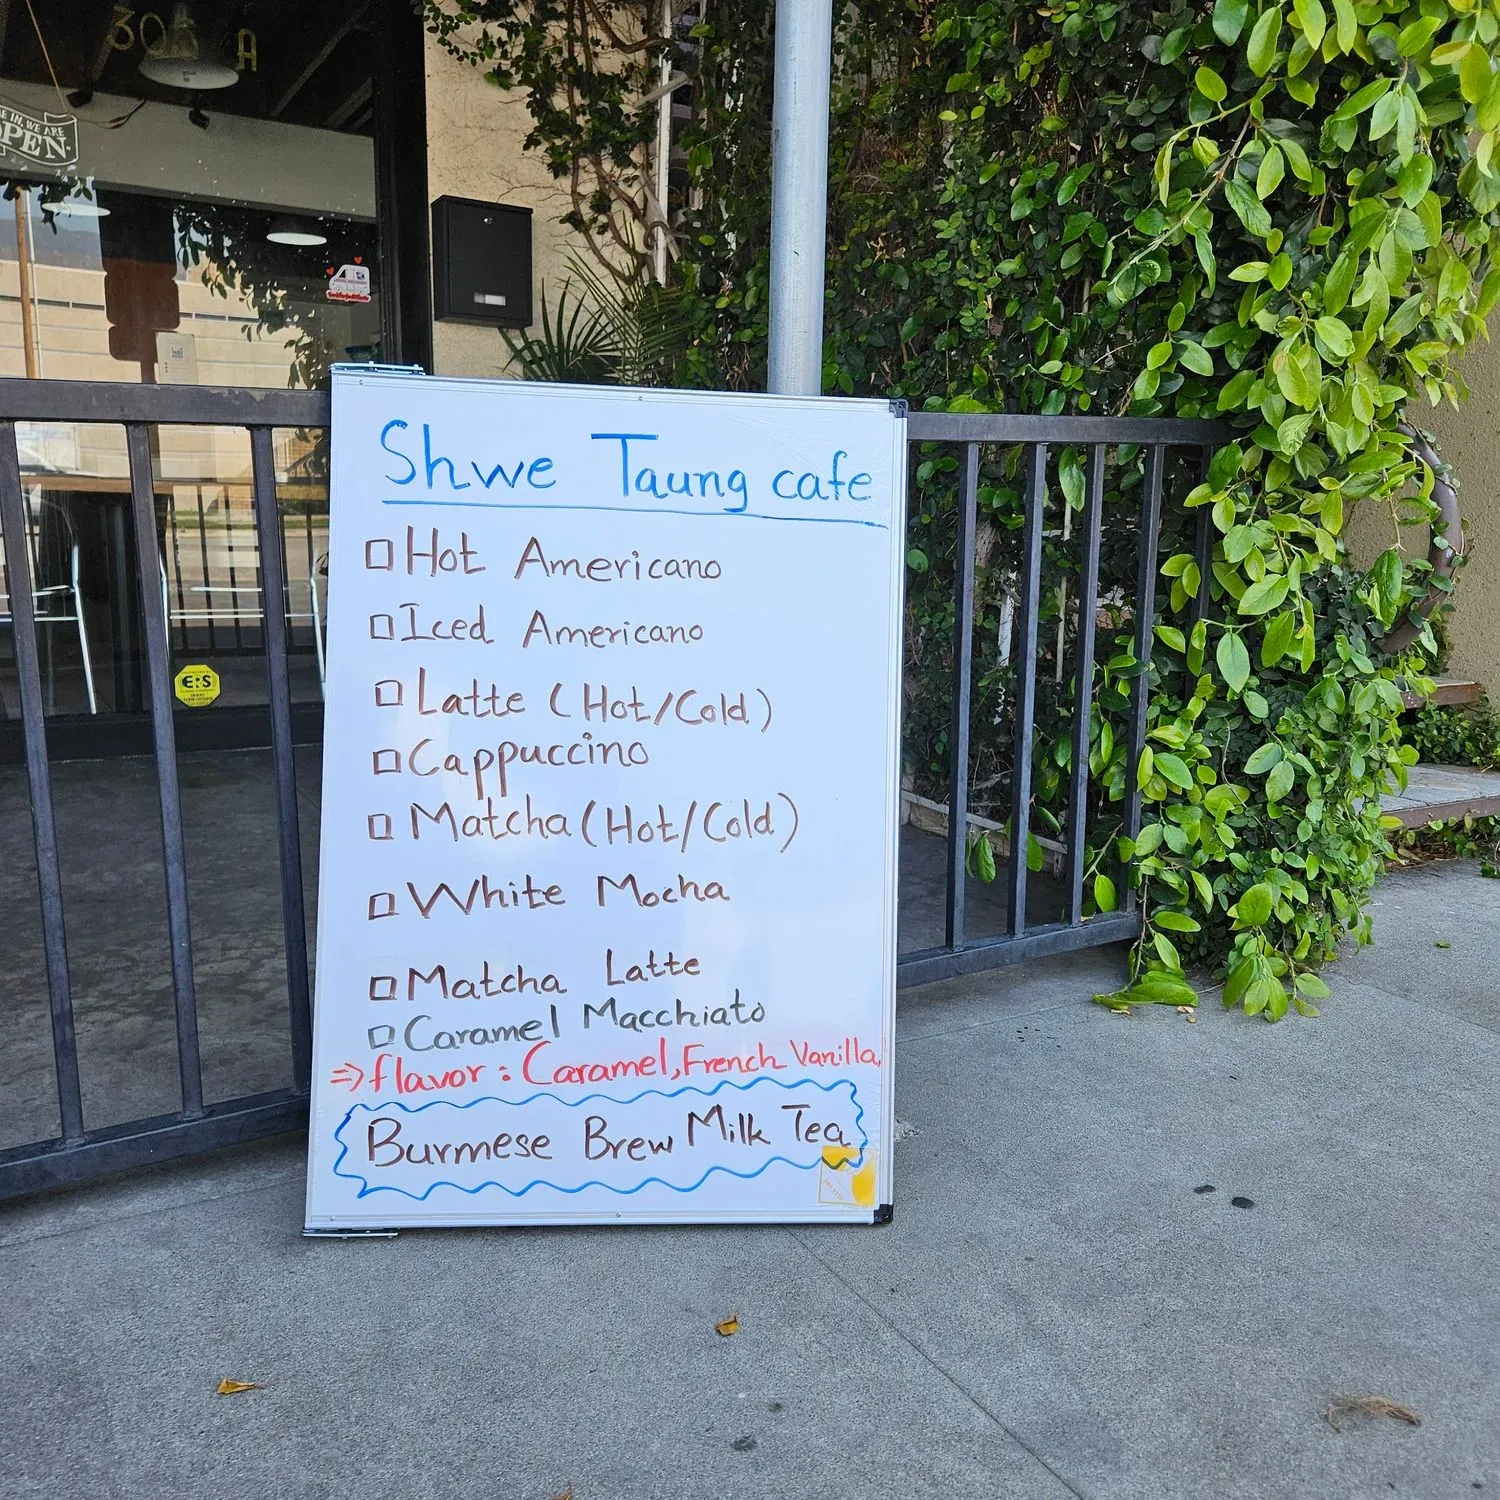 305 A
WE ARE
OPEN
EPS
Shwe Taung cafe
Hot Americano
Iced Americano
Latte (Hot/Cold)
Cappuccino
Matcha (Hot/Cold)
White Mocha
Matcha Latte
Caramel Macchiato
⇒ flavor : Caramel, French Vanilla,
Burmese Brew Milk Tea